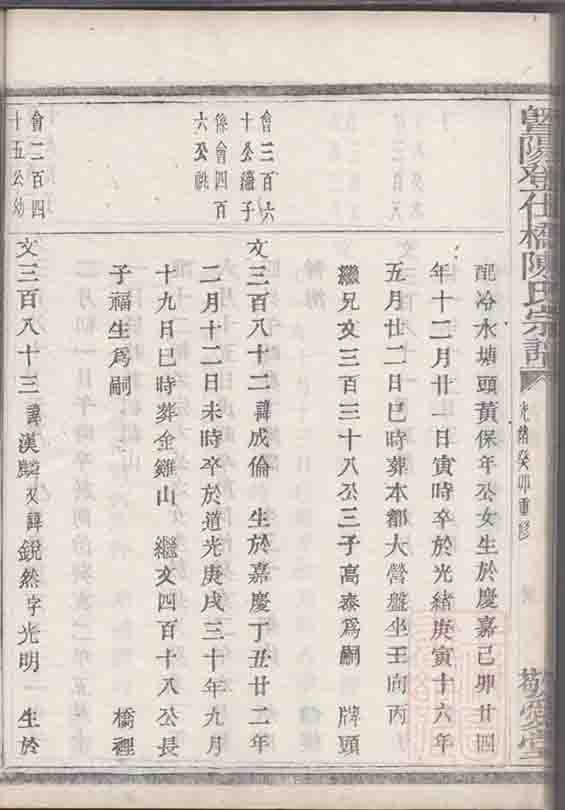 暨陽登仕橋陳氏宗譜
光緒癸卯重修
敬愛堂
配冷水塘頭黃保年公女生於慶嘉己卯廿四
年十二月廿一日寅時卒於光緒庚寅十六年
五月廿二日巳時葬本都大營盤坐壬向丙
繼兄文三百三十八公三子高泰為嗣 牌頭
會三百六
十公繼子
係會四百
六公祧
文三百八十二諱成倫 生於嘉慶丁丑廿二年
二月十二日未時卒於道光庚戌三十年九月
十九日巳時葬金雞山 繼文四百十八公長
子福生為嗣 橋裡
會二百四
十五公幼
文三百八十三諱漢麟又諱銳然字光明 生於